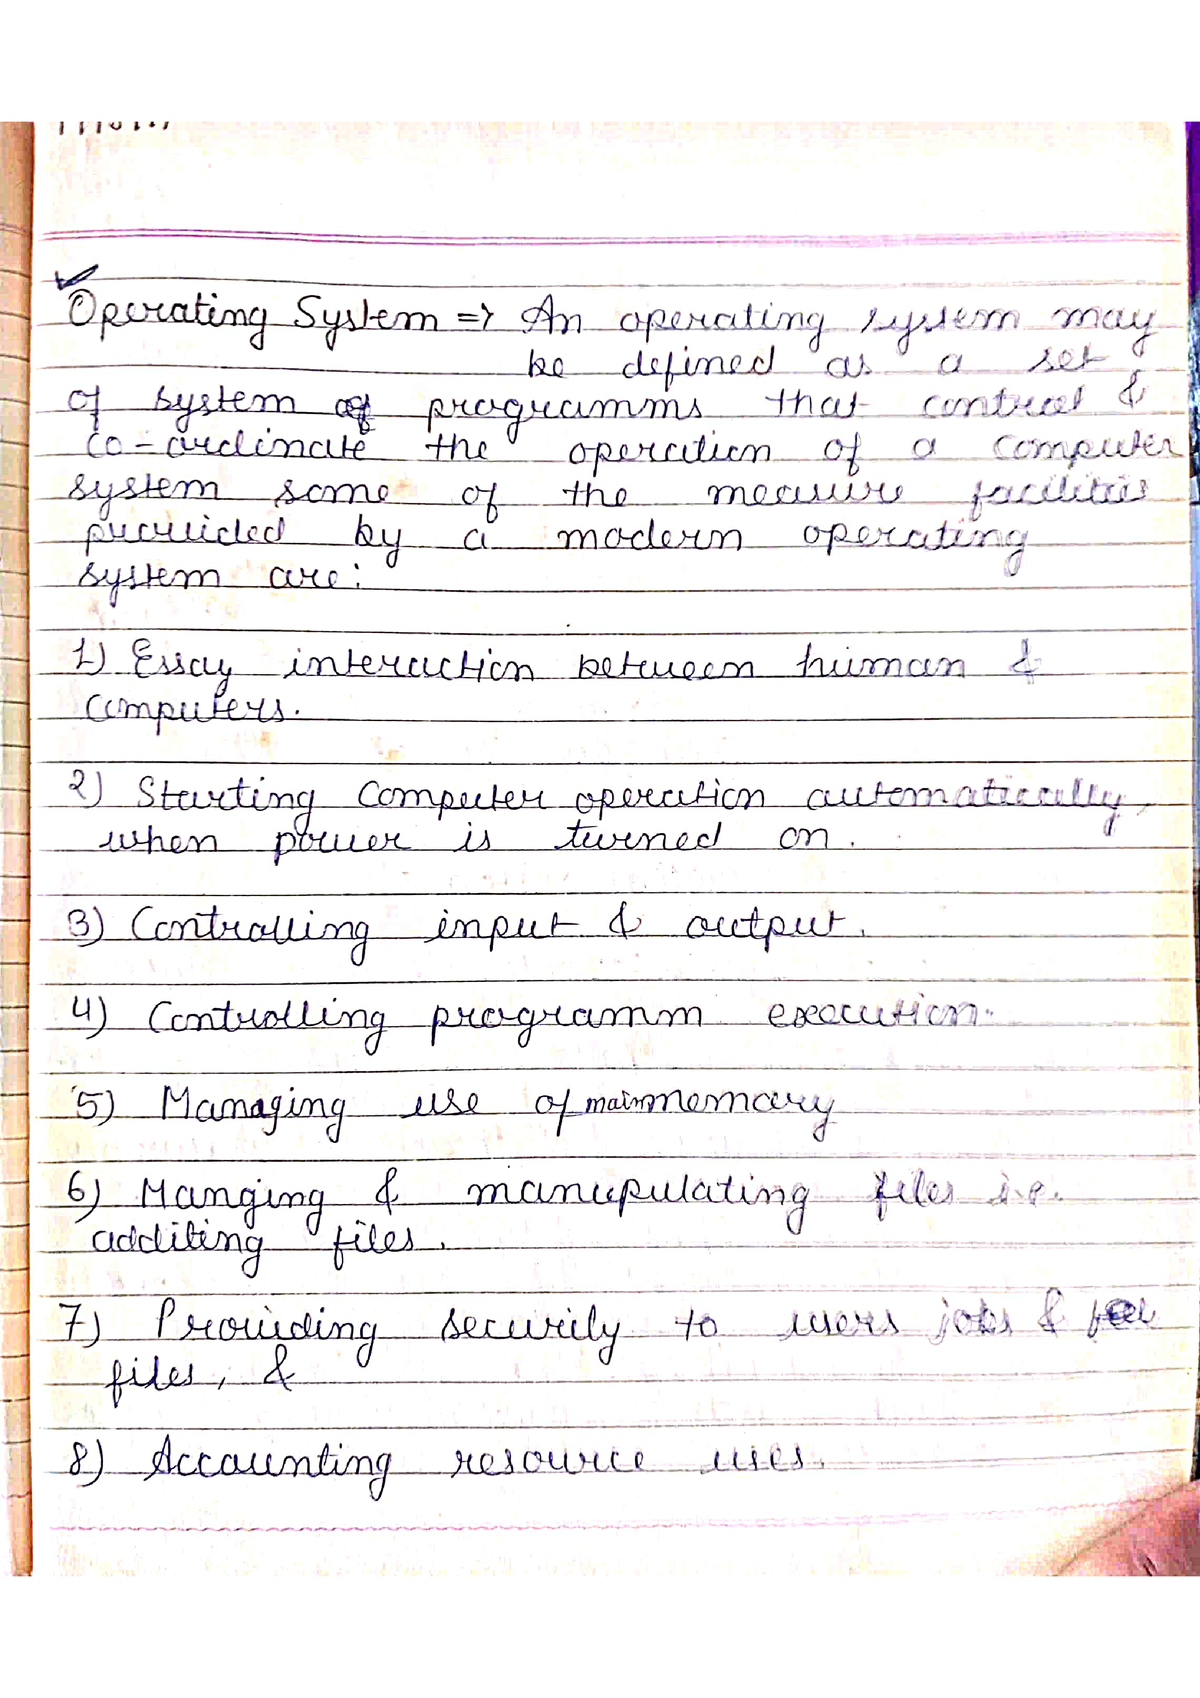 Operating System => An operating system may
be defined as a set
of system programms that control &
co-ordinate the operation of a computer
system some of the measure facilities
provided by a modern operating
system are:
1) Essay interaction between human &
computers.
2) Starting Computer operation automatically
when power is turned on.
3) Controlling input & output.
4) Controlling programm execution.
5) Managing use of main memory
6) Manging & manupulating files i.e.
additing files.
7) Providing security to users jobs &
files, &
8) Accounting resource uses.